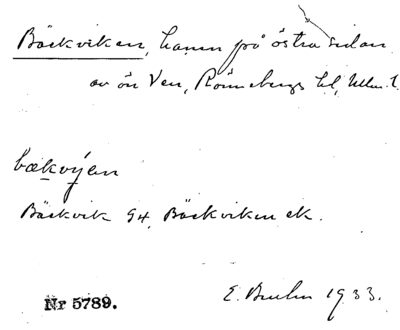 Bäckviken, hamn på östra sidan
av ön Ven, Rönnebergs hd, Mlm. l.
bækvýen
Bäckvik GK, Bäckviken ek.
E. Bruhn 1933.
Nr 5789.